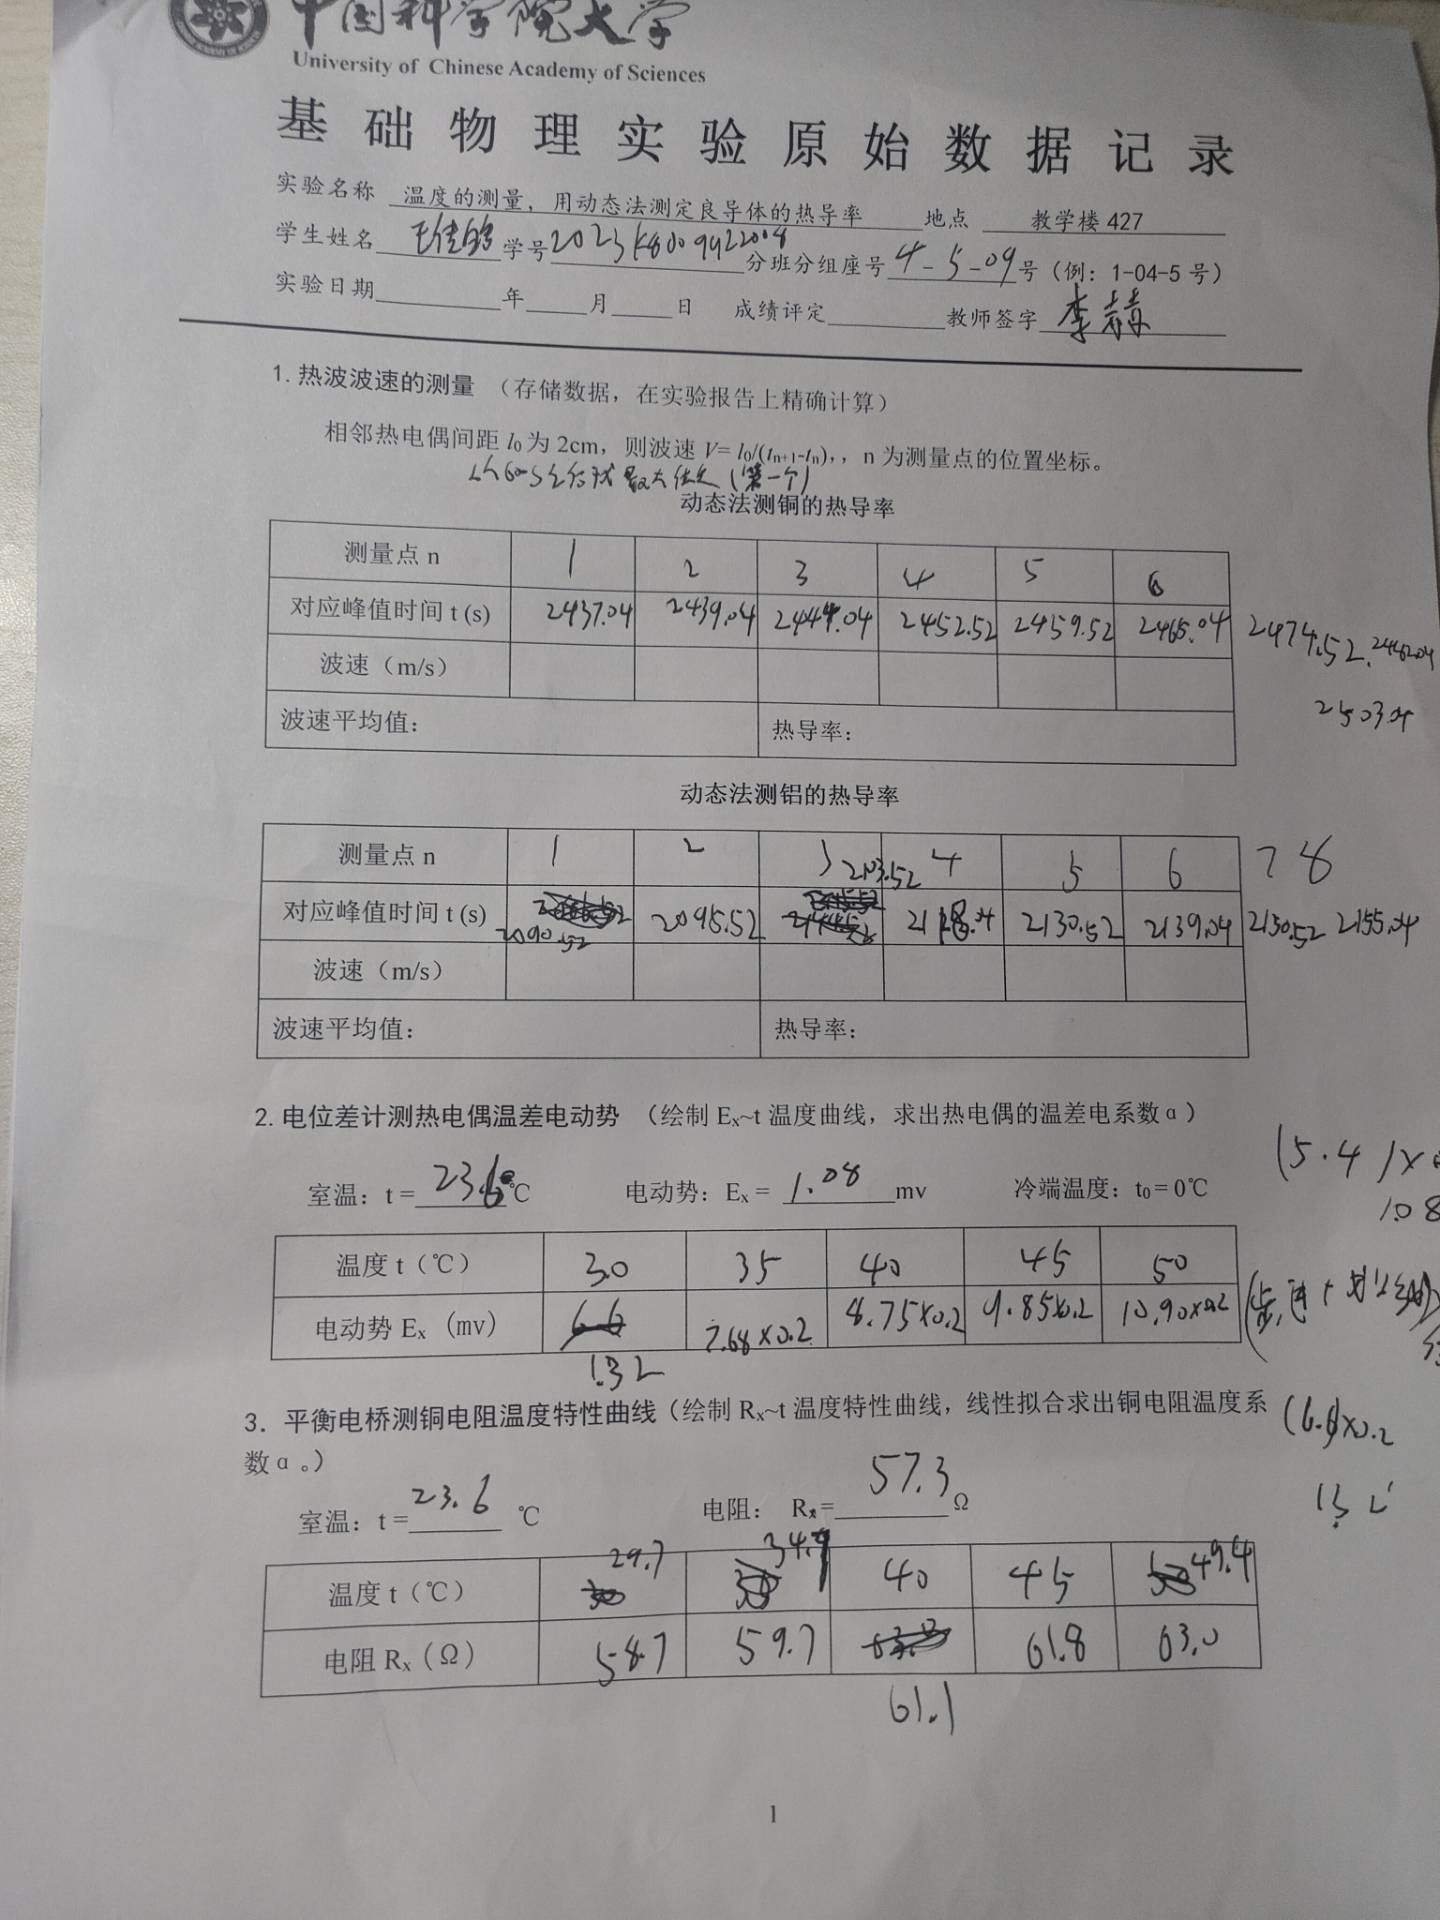 中国科学院大学
University of Chinese Academy of Sciences
基础物理实验原始数据记录
实验名称 温度的测量，用动态法测定良导体的热导率 地点 教学楼 427
学生姓名 学号 2023K8009922008 分班分组座号 4-5-09 号（例：1-04-5 号）
实验日期 年 月 日 成绩评定 教师签字 李
1. 热波波速的测量 （存储数据，在实验报告上精确计算）
相邻热电偶间距 l₀ 为 2cm，则波速 V= l₀/(tₙ₊₁-tₙ)，，n 为测量点的位置坐标。
最大 (第一个)
动态法测铜的热导率
测量点 n 1 2 3 4 5 6
对应峰值时间 t (s) 2437.04 2439.04 2444.04 2452.52 2459.52 2465.04 2474.52. 2482.04
波速（m/s）
2503.04
波速平均值： 热导率：
动态法测铝的热导率
测量点 n 1 2 3 4 5 6 7 8
2103.52
对应峰值时间 t (s) 2095.52 2118.04 2130.52 2139.04 2150.52 2155.04
2090.52
波速（m/s）
波速平均值： 热导率：
2. 电位差计测热电偶温差电动势 （绘制 Eₓ~t 温度曲线，求出热电偶的温差电系数 α）
(5.4 )×
室温：t = 23.6 ℃ 电动势：Eₓ = 1.08 mv 冷端温度：t₀ = 0℃
1.08
温度 t（℃） 30 35 40 45 50
电动势 Eₓ（mv） 6.6 7.68×0.2 8.75×0.2 9.85×0.2 10.90×0.2
1.32
3. 平衡电桥测铜电阻温度特性曲线（绘制 Rₓ~t 温度特性曲线，线性拟合求出铜电阻温度系
数 α 。）
(6.6)×0.2
室温：t = 23.6 ℃ 电阻： Rₓ= 57.3 Ω
29.7 34.9
温度 t（℃） 40 45 49.4
电阻 Rₓ（Ω） 58.7 59.7 61.8 63.0
61.1
1